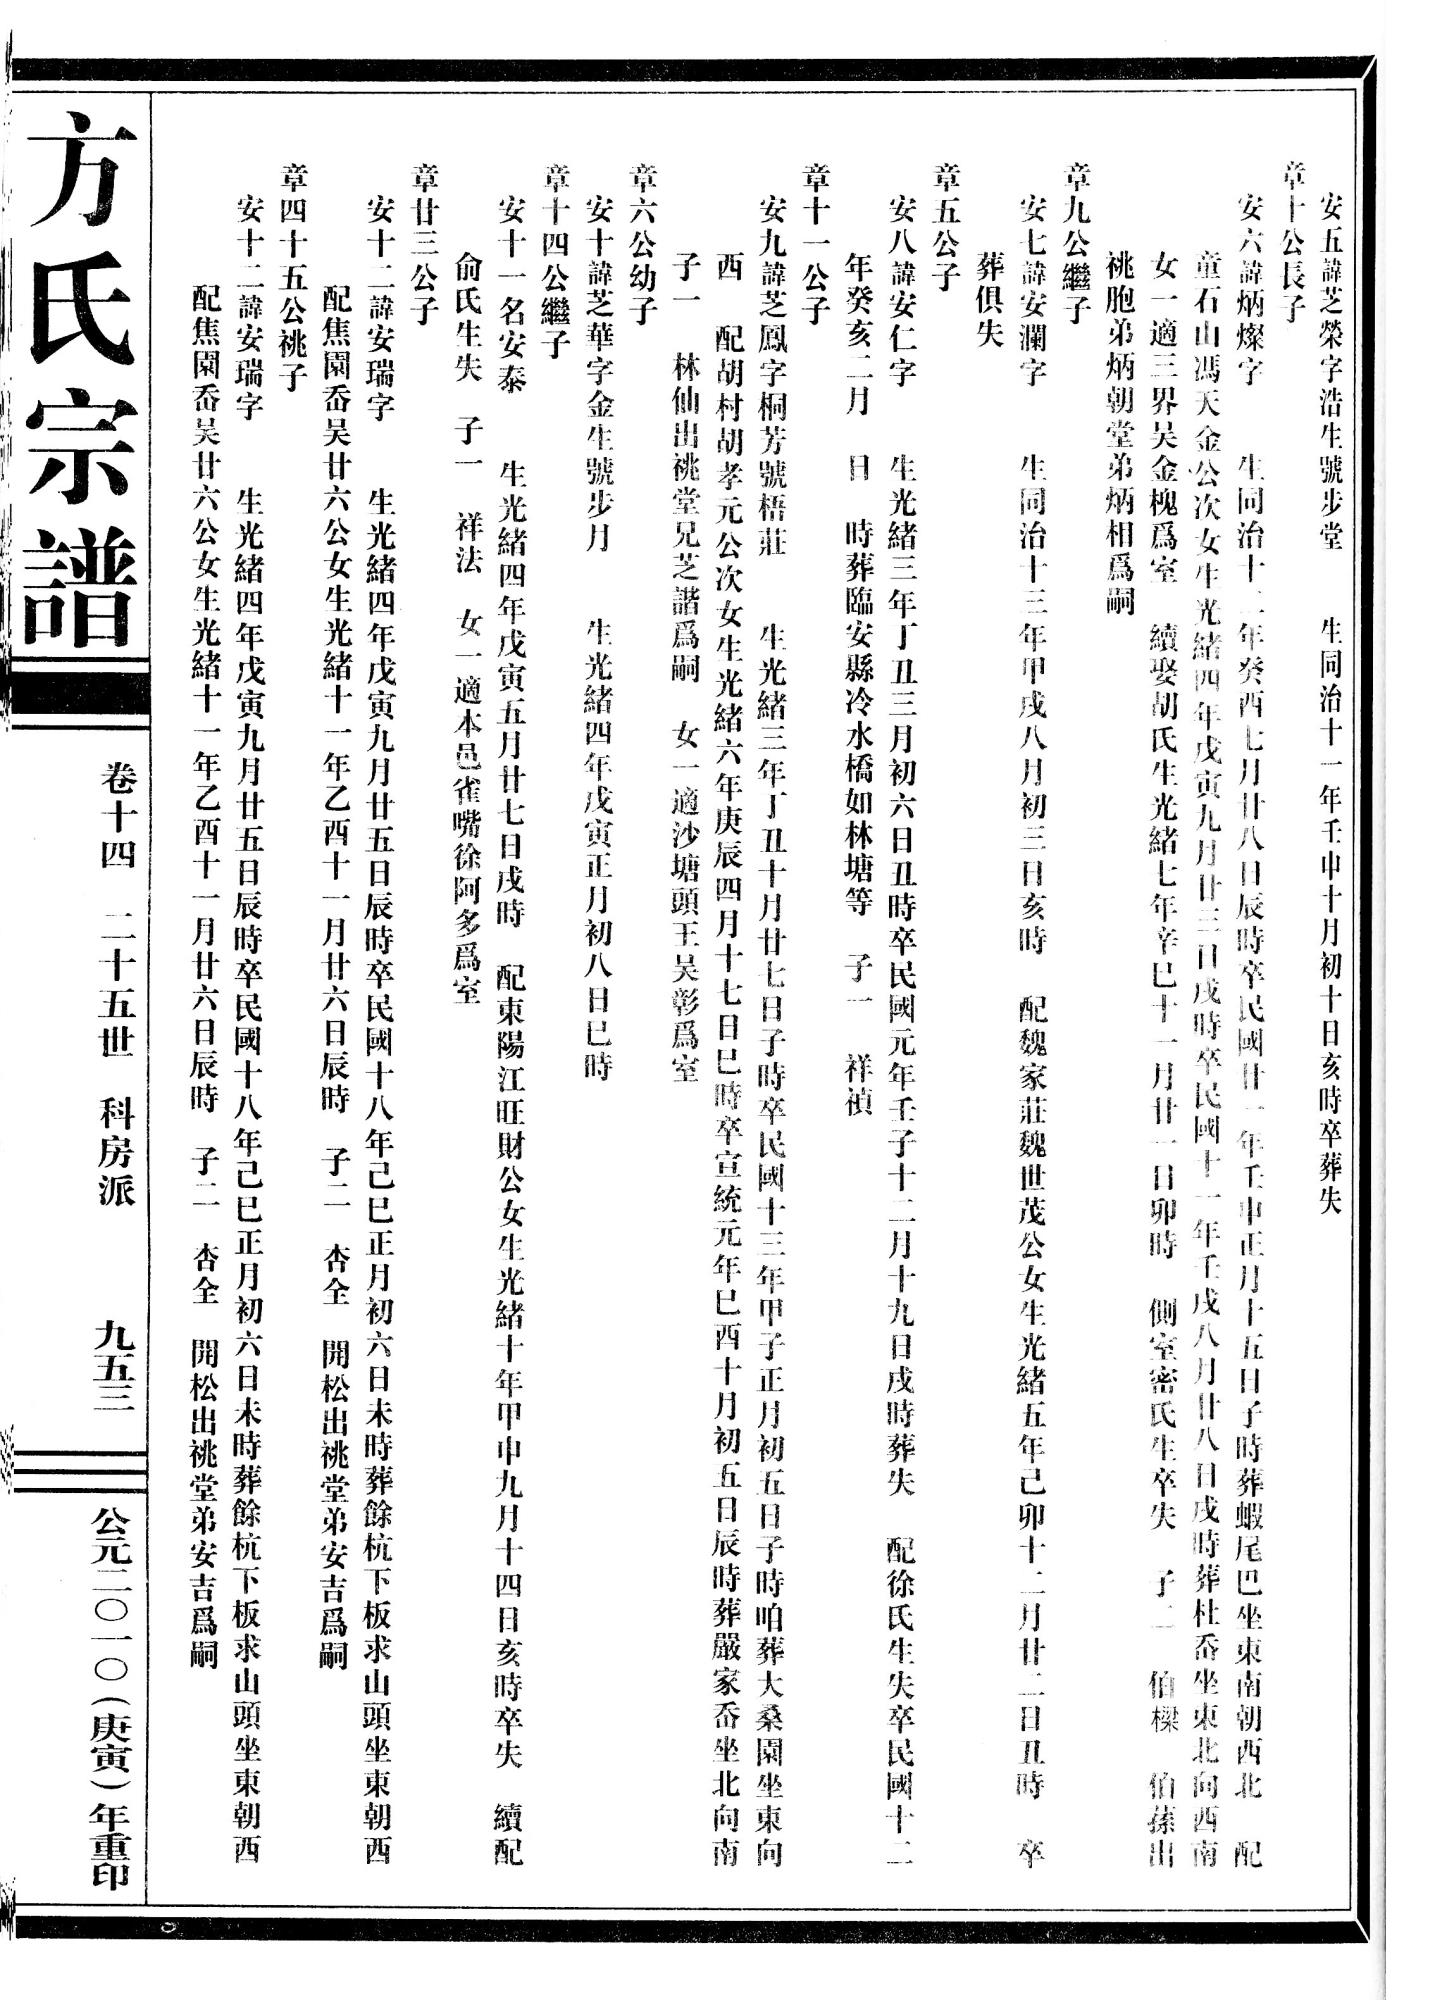 安五諱芝榮字浩生號步堂　生同治十一年壬申十月初十日亥時卒葬失
章十公長子
安六諱炳燦字　生同治十二年癸酉七月廿八日辰時卒民國廿一年壬申正月十五日子時葬蝦尾巴坐東南朝西北　配
童石山馮天金公次女生光緒四年戊寅九月廿三日戌時卒民國十一年壬戌八月廿八日戌時葬杜岙坐東北向西南
女一適三界吴金槐爲室　續娶胡氏生光緒七年辛巳十一月廿一日卯時　側室密氏生卒失　子二　伯樑　伯蓀出
祧胞弟炳朝堂弟炳相爲嗣
章九公繼子
安七諱安瀾字　生同治十三年甲戌八月初三日亥時　配魏家莊魏世茂公女生光緒五年己卯十二月廿二日丑時　卒
葬俱失
章五公子
安八諱安仁字　生光緒三年丁丑三月初六日丑時卒民國元年壬子十二月十九日戌時葬失　配徐氏生失卒民國十二
年癸亥二月　日　時葬臨安縣冷水橋如林塘等　子一　祥禎
章十一公子
安九諱芝鳳字桐芳號梧莊　生光緒三年丁丑十月廿七日子時卒民國十三年甲子正月初五日子時咱葬大桑園坐東向
西　配胡村胡孝元公次女生光緒六年庚辰四月十七日巳時卒宣統元年巳酉十月初五日辰時葬嚴家岙坐北向南
子一　林仙出祧堂兄芝諧爲嗣　女一適沙塘頭王吴彰爲室
章六公幼子
安十諱芝華字金生號步月　生光緒四年戊寅正月初八日巳時
章十四公繼子
安十一名安泰　生光緒四年戊寅五月廿七日戌時　配東陽江旺財公女生光緒十年甲申九月十四日亥時卒失　續配
俞氏生失　子一　祥法　女一適本邑雀嘴徐阿多爲室
章廿三公子
安十二諱安瑞字　生光緒四年戊寅九月廿五日辰時卒民國十八年己巳正月初六日未時葬餘杭下板求山頭坐東朝西
配焦園岙吴廿六公女生光緒十一年乙酉十一月廿六日辰時　子二　杏全　開松出祧堂弟安吉爲嗣
章四十五公祧子
安十二諱安瑞字　生光緒四年戊寅九月廿五日辰時卒民國十八年己巳正月初六日未時葬餘杭下板求山頭坐東朝西
配焦園岙吴廿六公女生光緒十一年乙酉十一月廿六日辰時　子二　杏全　開松出祧堂弟安吉爲嗣
方氏宗譜
卷十四　二十五世　科房派　九五三
公元二〇一〇（庚寅）年重印